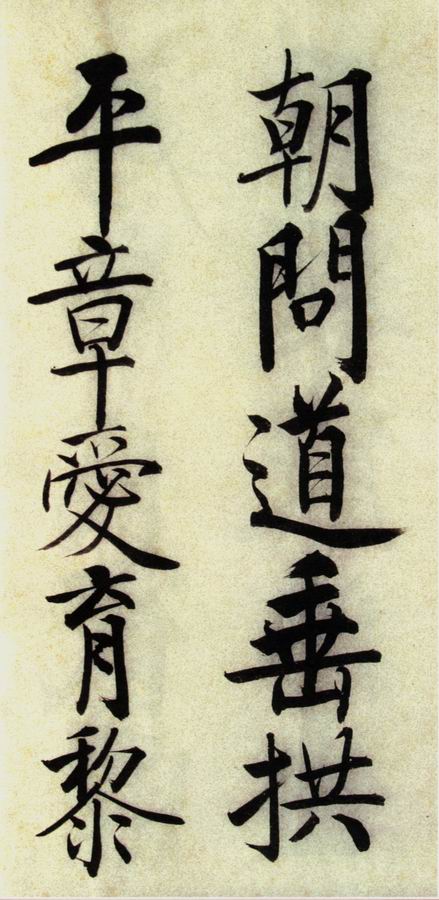 朝問道垂拱
平章愛育黎